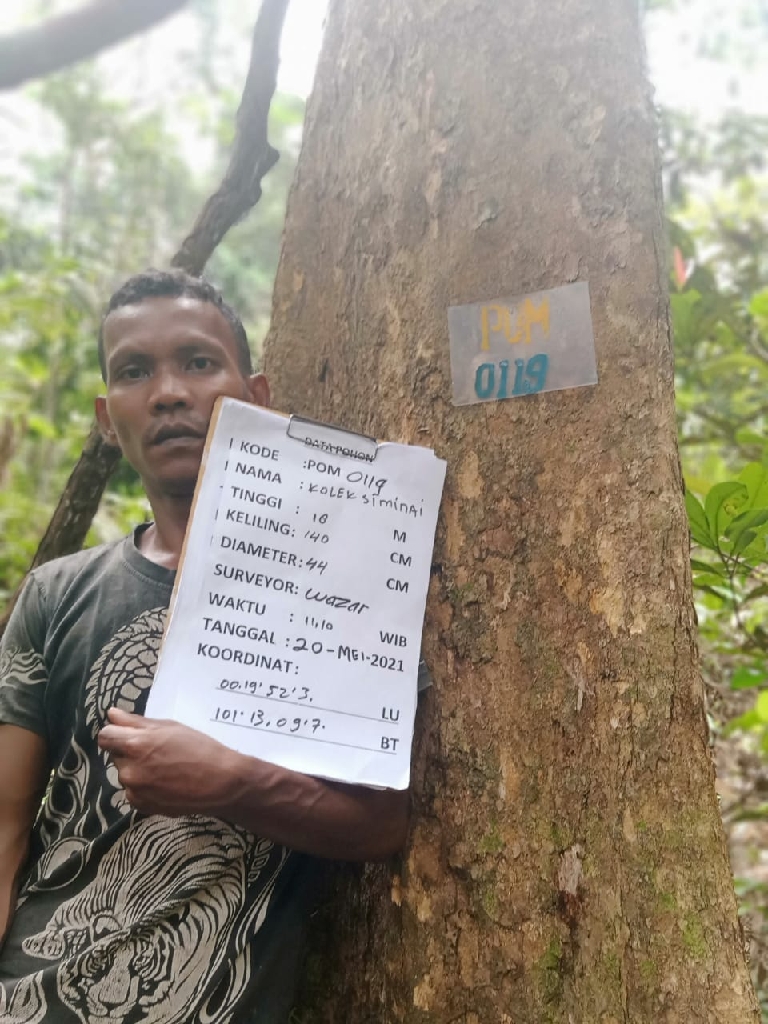 DATA POHON
KODE :POM 0119
NAMA : KOLEK SIMINAI
TINGGI : 18 M
KELILING: 140 CM
DIAMETER: 44 CM
SURVEYOR: wazar
WAKTU : 11.10 WIB
TANGGAL : 20-MEI-2021
KOORDINAT:
00.19'52'3. LU
101° 13.09'7. BT
POM
0119